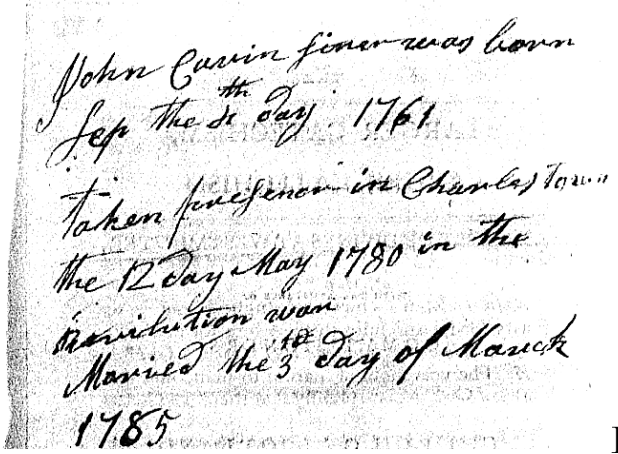 John Cavin siner was born
Sep the 4th day 1761
taken presenor in Charles Town
the 12 day May 1780 in the
Revilution war
Maried the 3td day of March
1785